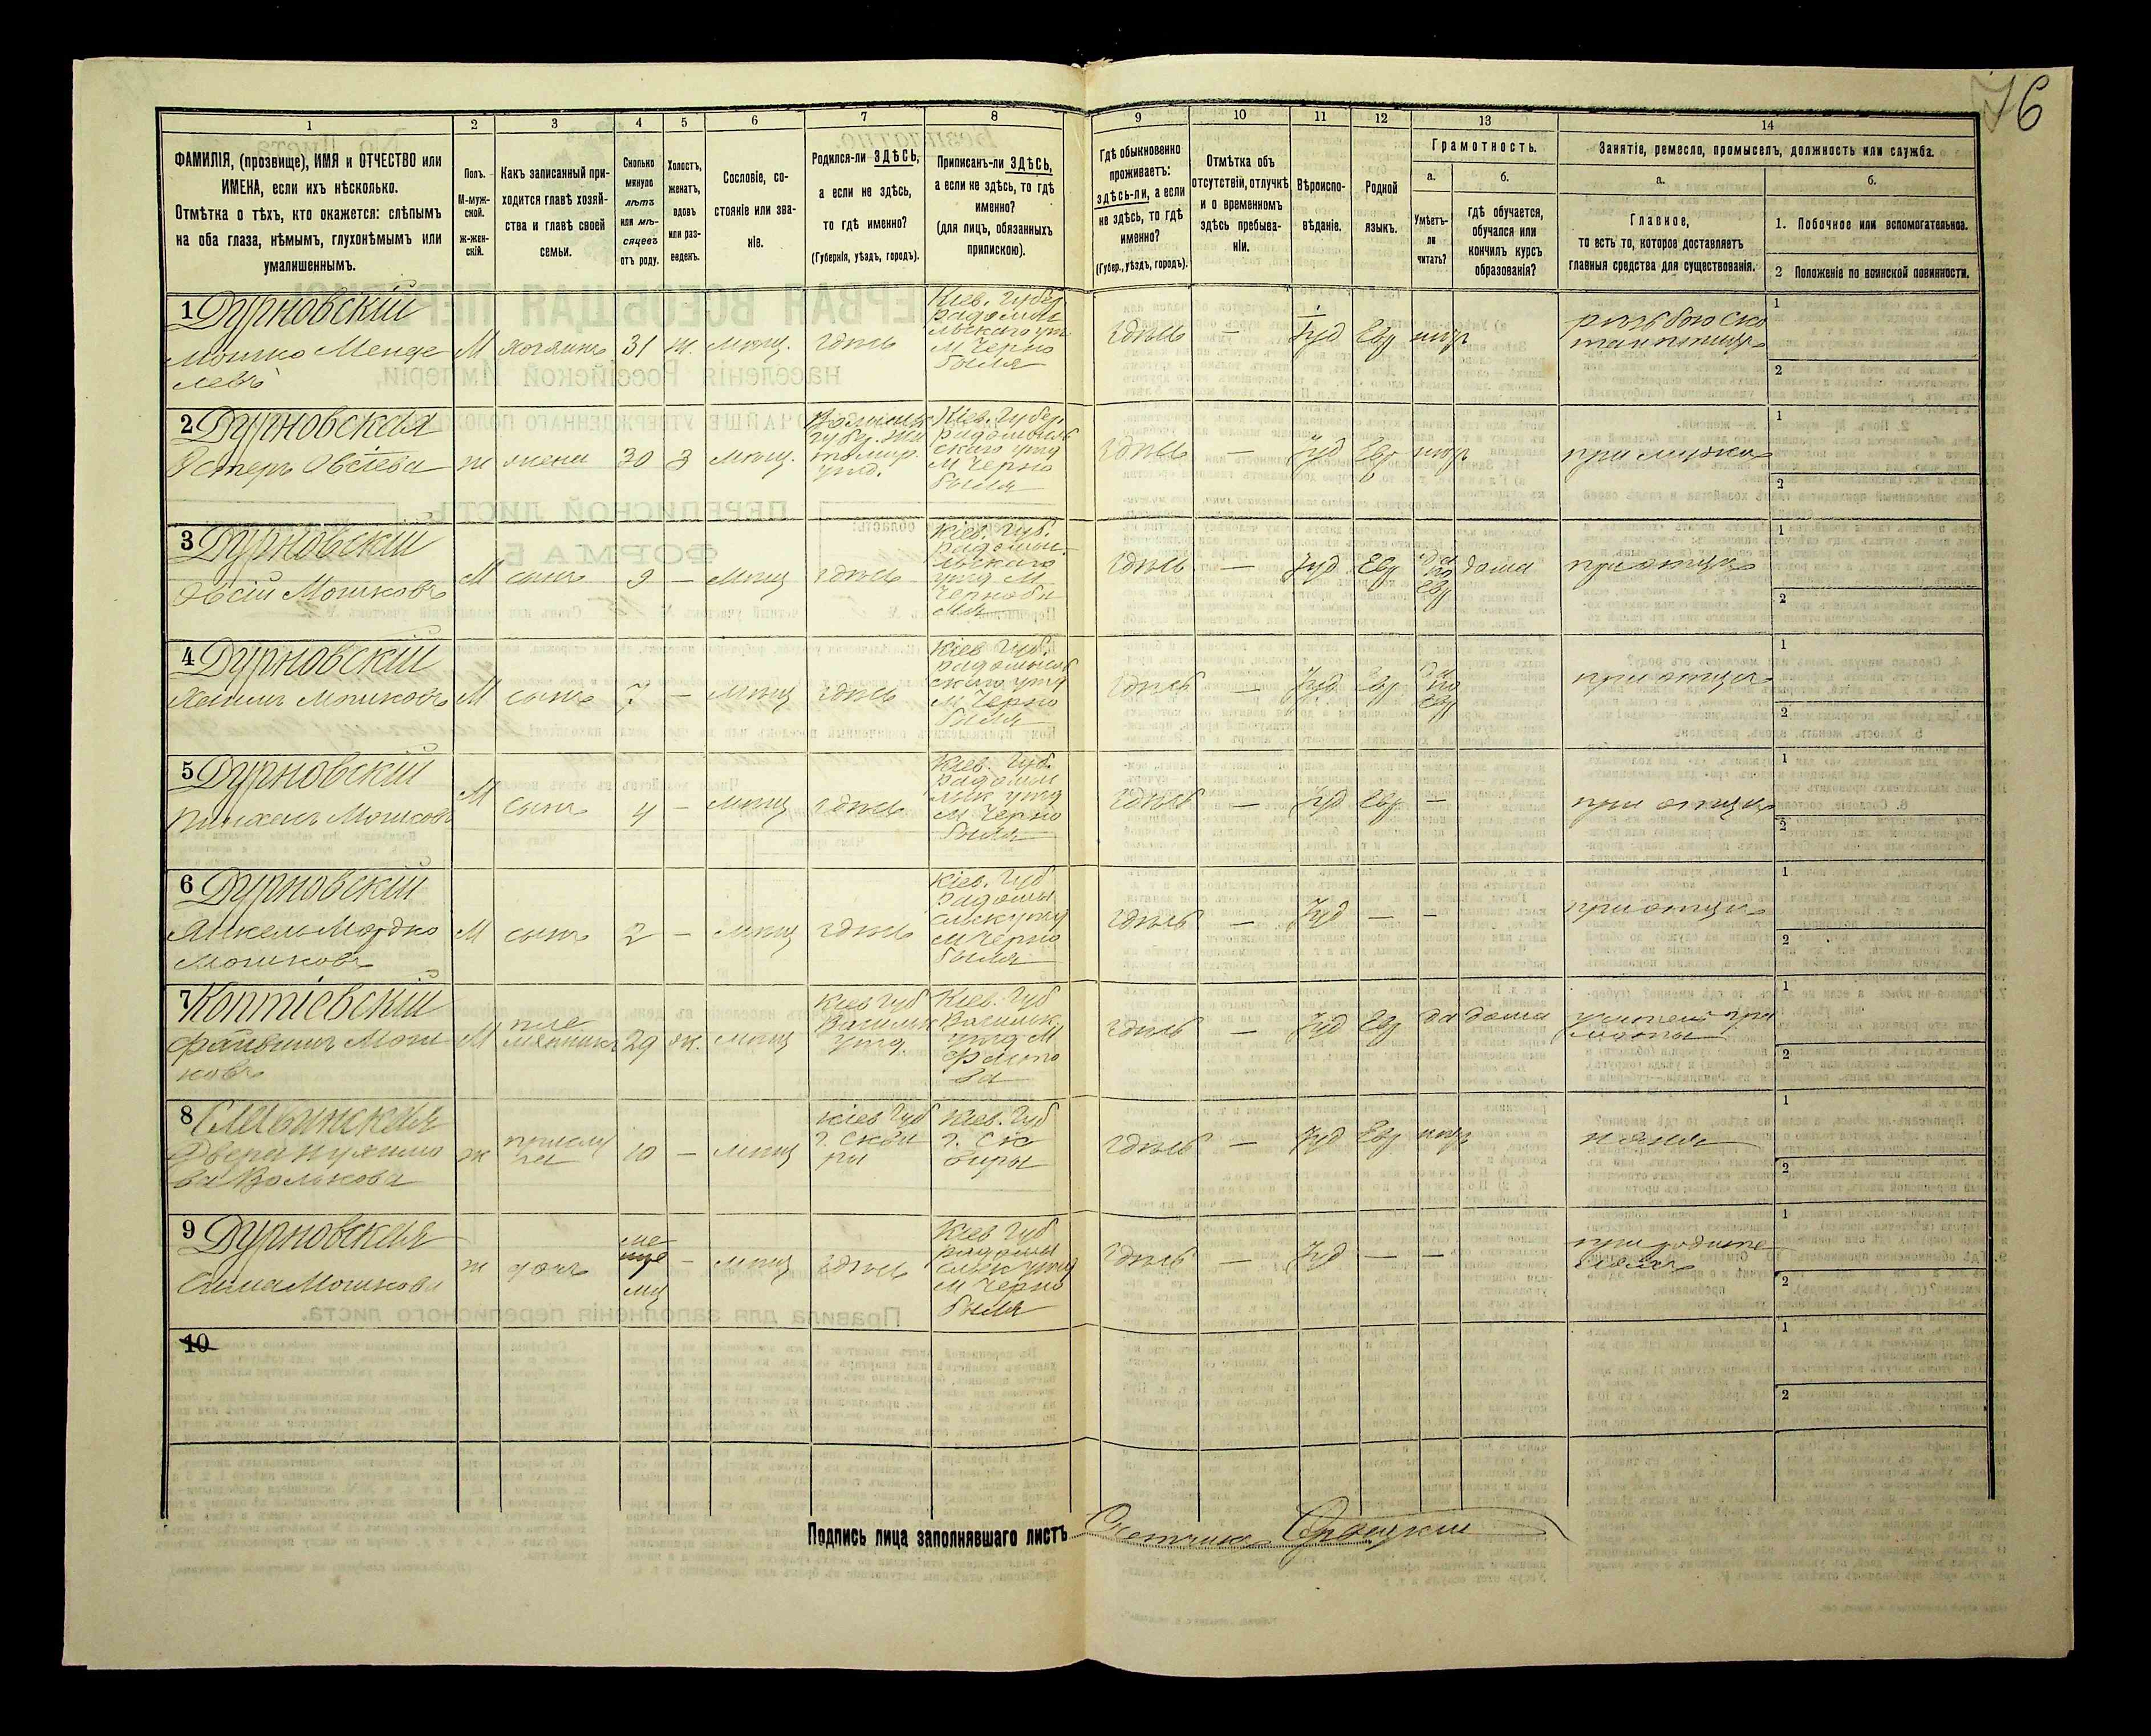 76
1
2
3
4
5
6
7
8
9
10
11
12
13
14
ФАМИЛІЯ, (прозвище), ИМЯ и ОТЧЕСТВО или
ИМЕНА, если ихъ нѣсколько.
Отмѣтка о тѣхъ, кто окажется: слѣпымъ
на оба глаза, нѣмымъ, глухонѣмымъ или
умалишеннымъ.
Полъ.
М-муж-
ской.
Ж-жен-
скій.
Какъ записанный при-
ходится главѣ хозяй-
ства и главѣ своей
семьи.
Сколько
минуло
лѣтъ
или мѣ-
сяцевъ
отъ роду.
Холостъ,
женатъ,
вдовъ
или раз-
веденъ.
Сословіе, со-
стояніе или зва-
ніе.
Родился-ли ЗДѢСЬ,
а если не здѣсь,
то гдѣ именно?
(Губернія, уѣздъ, городъ).
Приписанъ-ли ЗДѢСЬ,
а если не здѣсь, то гдѣ
именно?
(для лицъ, обязанныхъ
припискою).
Гдѣ обыкновенно
проживаетъ:
здѣсь-ли, а если
не здѣсь, то гдѣ
именно?
(Губер., уѣздъ, городъ).
Отмѣтка объ
отсутствіи, отлучкѣ
и о временномъ
здѣсь пребыва-
ніи.
Вѣроиспо-
вѣданіе.
Родной
языкъ.
Грамотность.
а.
Умѣетъ-
ли
читать?
б.
гдѣ обучается,
обучался или
кончилъ курсъ
образованія?
Занятіе, ремесло, промыселъ, должность или служба.
а.
Главное,
то есть то, которое доставляетъ
главныя средства для существованія.
б.
1. Побочное или вспомогательное.
2 Положеніе по воинской повинности.
1 Дурновскій
Мошко Менде
левъ
М
хозяинъ
31
ж.
мѣщ.
здѣсь
Кіев. Губер.
радомы
льскаго уѣз.
М Черно
быля
здѣсь
—
Іуд
Евр
негр
1
2
2 Дурновская
Эстеръ Овсіева
ж
жена
30
з
мѣщ.
Волынск
губер. Жи
томир.
уѣзд.
Кіев. Губер.
радомысль
скаго уѣзд
М Черно
быля
здѣсь
—
Іуд
Евр
негр
при мужѣ
1
2
3 Дурновскій
Овсій Мошковъ
М
сынъ
9
—
мѣщ
здѣсь
Кіев. Губ.
радомы-
льскаго
уѣзд М
Чернобы
ля
здѣсь
—
Іуд
Евр
Да
по
Евр
дома
при отцѣ
1
2
4 Дурновскій
Мошковъ
М
сынъ
7
—
мѣщ
здѣсь
Кіев Губ.
радомысль
скаго уѣзд
М Черно
быля
здѣсь
—
Іуд
Евр
Да
по
Евр
при отцѣ
1
2
5 Дурновскій
Пинхасъ Мошковъ
М
сынъ
4
—
мѣщ
здѣсь
Кіев. Губ.
радомы
льск уѣзд
М Черно
быля
здѣсь
—
Іуд
Евр
—
при отцѣ
1
2
6 Дурновскій
Янкель Мордко
Мошковъ
М
сынъ
2
—
мѣщ
здѣсь
Кіев. Губ
радомы
сльск уѣзд
М Черно
быля
здѣсь
—
Іуд
—
—
при отцѣ
1
2
7 Коптіевскій
Файвишъ Мош
ковъ
М
пле
мянникъ
29
ж.
мѣщ
Кіев Губ
Васильк
уѣзд.
Кіев. Губ
Васильк.
уѣзд М
Фасто
ва
здѣсь
—
Іуд
Евр
Да
дома
1
2
8
Волькова
ж
прислу
га
10
—
мѣщ
Кіев Губ
г. Скви
ры
Кіев. Губ
г. Ск
виры
здѣсь
—
Іуд
Евр
негр
няня
1
2
9 Дурновская
Сима Мошкова
ж
дочь
—
мѣщ
здѣсь
Кіев Губ
радомы
сльск уѣзд
М Черно
быля
здѣсь
—
Іуд
—
—
при родите
ляхъ
1
2
10
1
2
Подпись лица заполнявшаго листъ Счетчикъ